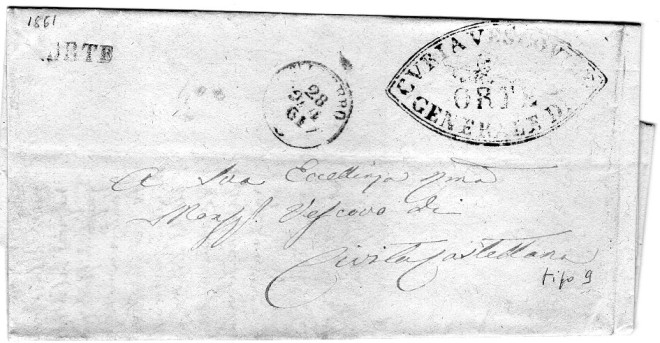 1861
ORTE
28
61
CVRIA VESCOVILE
ORTE
GENERALE DI
A Sua Eccellenza
Vescovo di
Civita Castellana
tipo 9